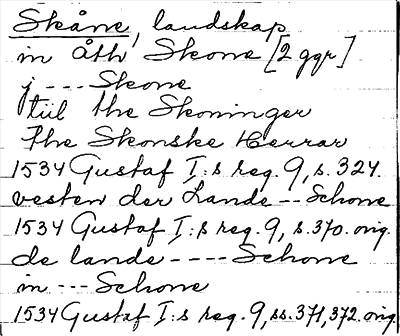 Skåne, landskap
in åth Skone [2 ggr]
j --- Skone
till the Skoninger
The Skonske Herrar
1534 Gustaf I:s reg. 9, s. 324.
vesten der Lande -- Schone
1534 Gustaf I:s reg. 9, s. 370. orig.
de lande ---- Schone
in --- Schone
1534 Gustaf I:s reg. 9, ss. 371, 372. orig.